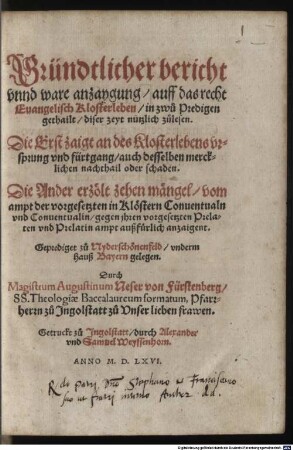 1
Gründtlicher bericht
vnnd ware anzaygung / auff das recht
Euangelisch Klosterleben / in zwů Predigen
gethailt / diser zeyt nützlich zůlesen.
Die Erst zaigt an des Klosterlebens vr-
sprung vnd fürtgang / auch desselben merck-
lichen nachthail oder schaden.
Die Ander erzölt zehen mängel / vom
ampt der vorgesetzten in Klöstern Conuentualn
vnd Conuentualin / gegen jhren vorgesetzten Prela-
ten vnd Prelatin ampt außfürlich anzaigent.
Geprediget zů Nyderschönenfeld / vnderm
Hauß Bayern gelegen.
Durch
Magistrum Augustinum Neser von Fürstenberg /
SS. Theologiæ Baccalaureum formatum, Pfarr-
herrn zů Ingolstatt zů Vnser lieben frawen.
Getruckt zů Ingolstatt / durch Alexander
vnd Samuel Weyssenhorn.
ANNO M. D. LXVI.
Stephano